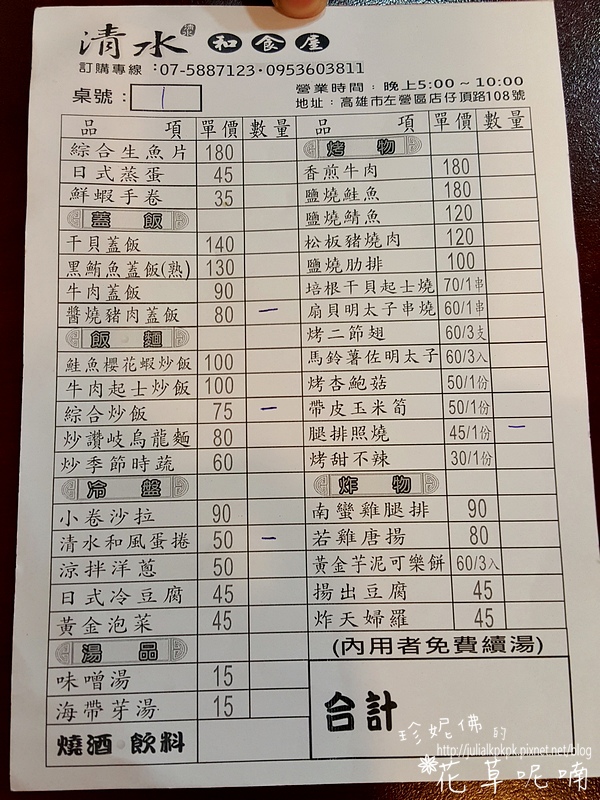 清水 和食屋
訂購專線：07-5887123·0953603811
桌號： 1
營業時間：晚上5:00～10:00
地址：高雄市左營區店仔頂路108號
品項 單價 數量
綜合生魚片 180
日式蒸蛋 45
鮮蝦手卷 35
蓋飯
干貝蓋飯 140
黑鮪魚蓋飯(熟) 130
牛肉蓋飯 90
醬燒豬肉蓋飯 80 一
飯·麵
鮭魚櫻花蝦炒飯 100
牛肉起士炒飯 100
綜合炒飯 75 一
炒讚岐烏龍麵 80
炒季節時蔬 60
冷盤
小卷沙拉 90
清水和風蛋捲 50 一
涼拌洋蔥 50
日式冷豆腐 45
黃金泡菜 45
湯品
味噌湯 15
海帶芽湯 15
燒酒·飲料
品項 單價 數量
烤物
香煎牛肉 180
鹽燒鮭魚 180
鹽燒鯖魚 120
松板豬燒肉 120
鹽燒肋排 100
培根干貝起士燒 70/1串
扇貝明太子串燒 60/1串
烤二節翅 60/3支
馬鈴薯佐明太子 60/3入
烤杏鮑菇 50/1份
帶皮玉米筍 50/1份
腿排照燒 45/1份 一
烤甜不辣 30/1份
炸物
南蠻雞腿排 90
若雞唐揚 80
黃金芋泥可樂餅 60/3入
揚出豆腐 45
炸天婦羅 45
(內用者免費續湯)
合計
珍妮佛的
http://julialkpkpk.pixnet.net/blog
花草呢喃